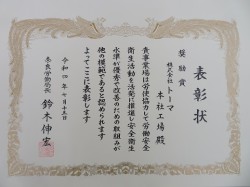 表彰状
奨励賞
株式会社トーマ
本社工場殿
貴事業場は労使協力して労働安全
衛生活動を活発に推進し安全衛生
水準が優秀で改善のための取組みが
他の模範であると認められます
よってここに表彰します
奈良労働局長
鈴木伸宏